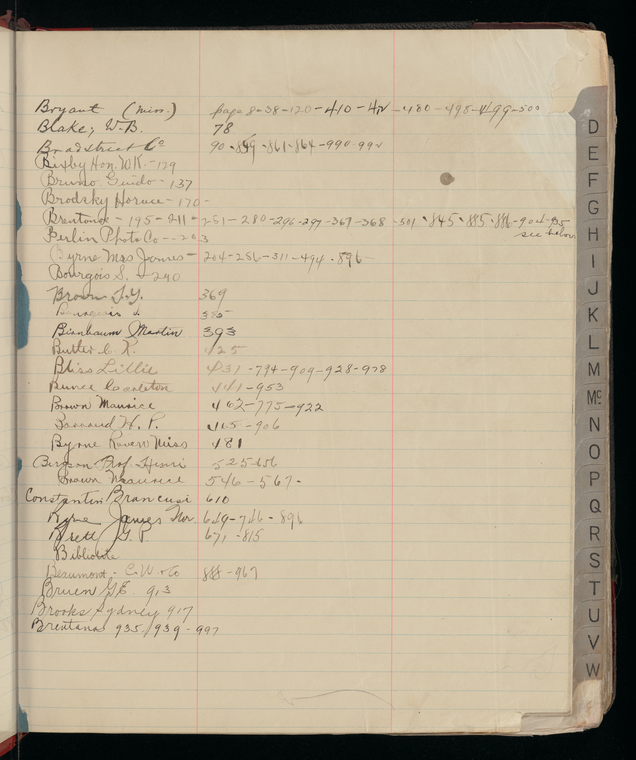 Bryant (Miss.) page 8-38-120-410-412-480-498-499-500
Blake, W.B. 78
Bradstreet Co 90-849-861-864-990-992
Bixby Hon. W.K.-179
Bruno Guido-137
Brodsky Horace-170-
Brentanos-195-211-251-280-296-297-367-368-501-845-885-886-904-935
see below
Berlin Photo Co--203
Byrne Mrs James-204-256-311-494-896
Bourgois S.-240
Brown J.G. 369
Bourgeois S. 385
Birnbaum Martin 393
Butler C.K. 425
Bliss Lillie 431-794-909-928-978
Bunce Carleton 441-953
Brown Maurice 462-775-922
Barnard H.P. 465-906
Byrne Raven Miss 481
Bergson Prof. Henri 525-656
Brown Maurice 546-567-
Constantin Brancusi 610
Byrne James Mr 649-746-896
Brett G.P. 671-815
Bibliothe
Beaumont-C.W. & Co 888-967
Bruen G.E. 913
Brooks Sydney 917
Brentana 935/939-997
D
E
F
G
H
I
J
K
L
M
Mc
N
O
P
Q
R
S
T
U
V
W